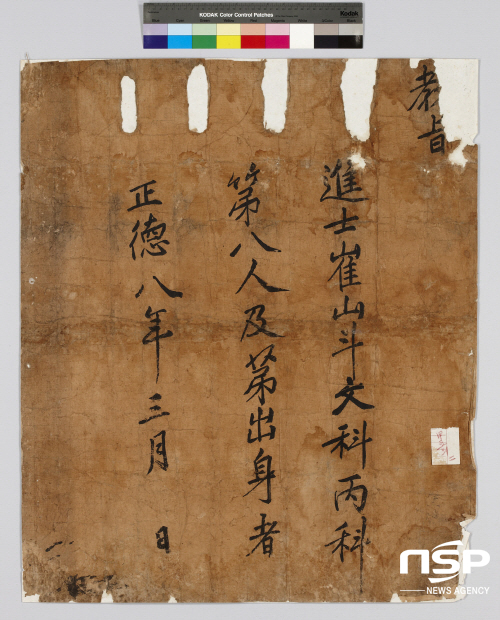 KODAK Color Control Patches
Kodak
教旨
進士崔山斗文科丙科
第八人及第出身者
正德八年三月 日
NSP
NEWS AGENCY